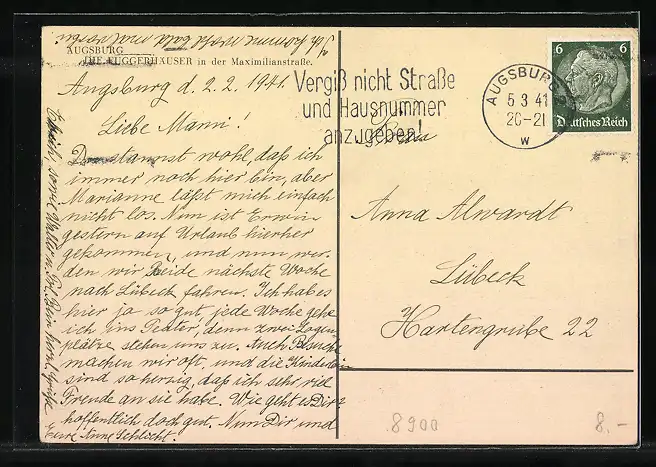 Ich komme recht bald mal vorbei.
AUGSBURG
THE FUGGERHÄUSER in der Maximilianstraße.
Augsburg d. 2. 2. 1941.
Liebe Mami!
Du staunst wohl, daß ich
immer noch hier bin, aber
Marianne läßt mich einfach
nicht los. Nun ist Erwin
gestern auf Urlaub hierher
gekommen, und nun wer-
den wir Beide nächste Woche
nach Lübeck fahren. Ich hab es
hier ja so gut, jede Woche gehe
ich ins Teater, denn zwei Logen
plätze stehen uns zu. Auch Besuche
machen wir oft, und die Kinderlein
sind so herzig, daß ich sehr viel
Freude an sie habe. Wie geht es Dir?
hoffentlich doch gut. Nun Dir und
herzl. Grüße
Eure Anne Schlicht.
Vergiß nicht Straße
und Hausnummer
anzugeben!
AUGSBURG
5 3 41
20-21
w
6 6
Deutsches Reich
Anna Alwardt
Lübeck
Hartengrube 22
8900
8.-